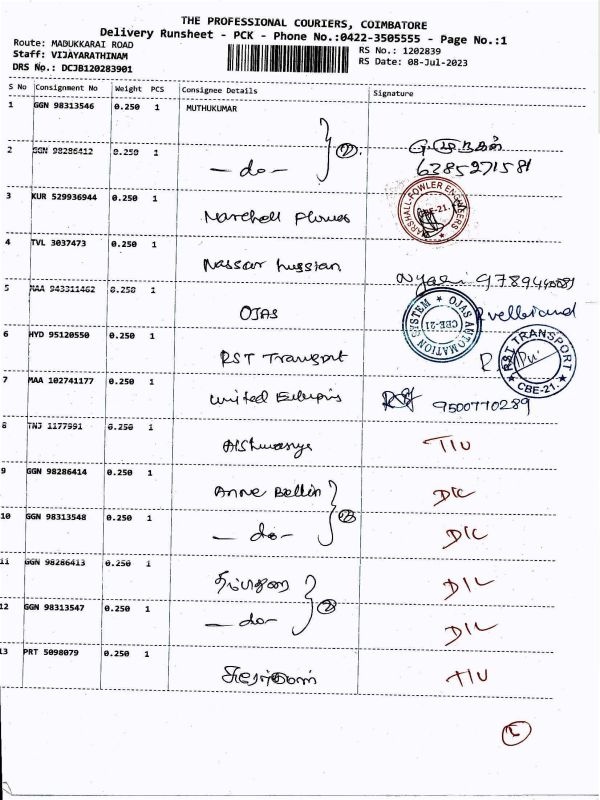 THE PROFESSIONAL COURIERS, COIMBATORE
Delivery Runsheet - PCK - Phone No.:0422-3505555 - Page No.:1
Route: MADUKKARAI ROAD
Staff: VIJAYARATHINAM
RS No.: 1202839
DRS No.: DCJB120283901
RS Date: 08-Jul-2023
S No Consignment No Weight PCS Consignee Details Signature
1 GGN 98313546 0.250 1 MUTHUKUMAR
2 GGN 98286412 0.250 1 - do - 2
6385271581
3 KUR 529936944 0.250 1 Marshall
MARSHALL-FOWLER ENGINEERS CBE-21.
4 TVL 3037473 0.250 1 Nassar hussian
5 MAA 943311462 0.250 1 OJAS
OJAS AUTOMATION SYSTEM CBE-21
6 HYD 95120550 0.250 1 RST Transport
RST TRANSPORT CBE-21.
7 MAA 102741177 0.250 1 United
9500770289
8 TNJ 1177991 0.250 1 Aishwarya TIU
9 GGN 98286414 0.250 1 Anne Bellin DIC
10 GGN 98313548 0.250 1 - do - 2 DIC
11 GGN 98286413 0.250 1 DIL
12 GGN 98313547 0.250 1 - do - 2 DIL
13 PRT 5098079 0.250 1 TIU